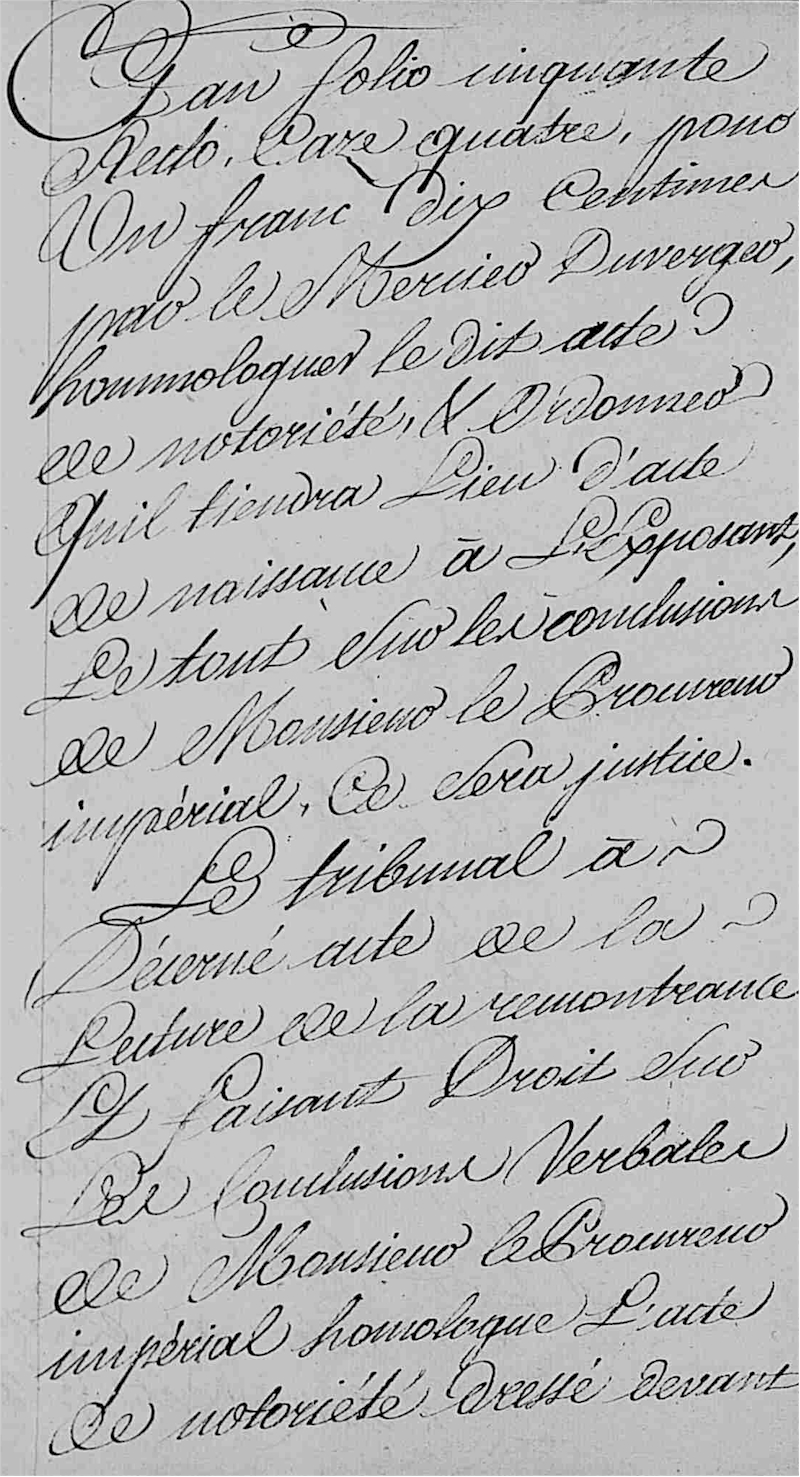 dan folio cinquante
Recto, Caze quatre, pour
Un franc dix Centimes
par le Mercier Duverger,
hommologuer le dit acte
de notoriété, & Ordonner
Qu'il tiendra Lieu d'acte
de naissance à L'Exposant,
Le tout Sur les conclusions
de Monsieur le Procureur
impérial, Ce Sera justice.
Le tribunal à
Décerné acte de la
Lecture de la remontrance
Et faisant Droit Sur
Les Conclusions Verbales
de Monsieur le Procureur
impérial homologue L'acte
de notoriété dressé devant